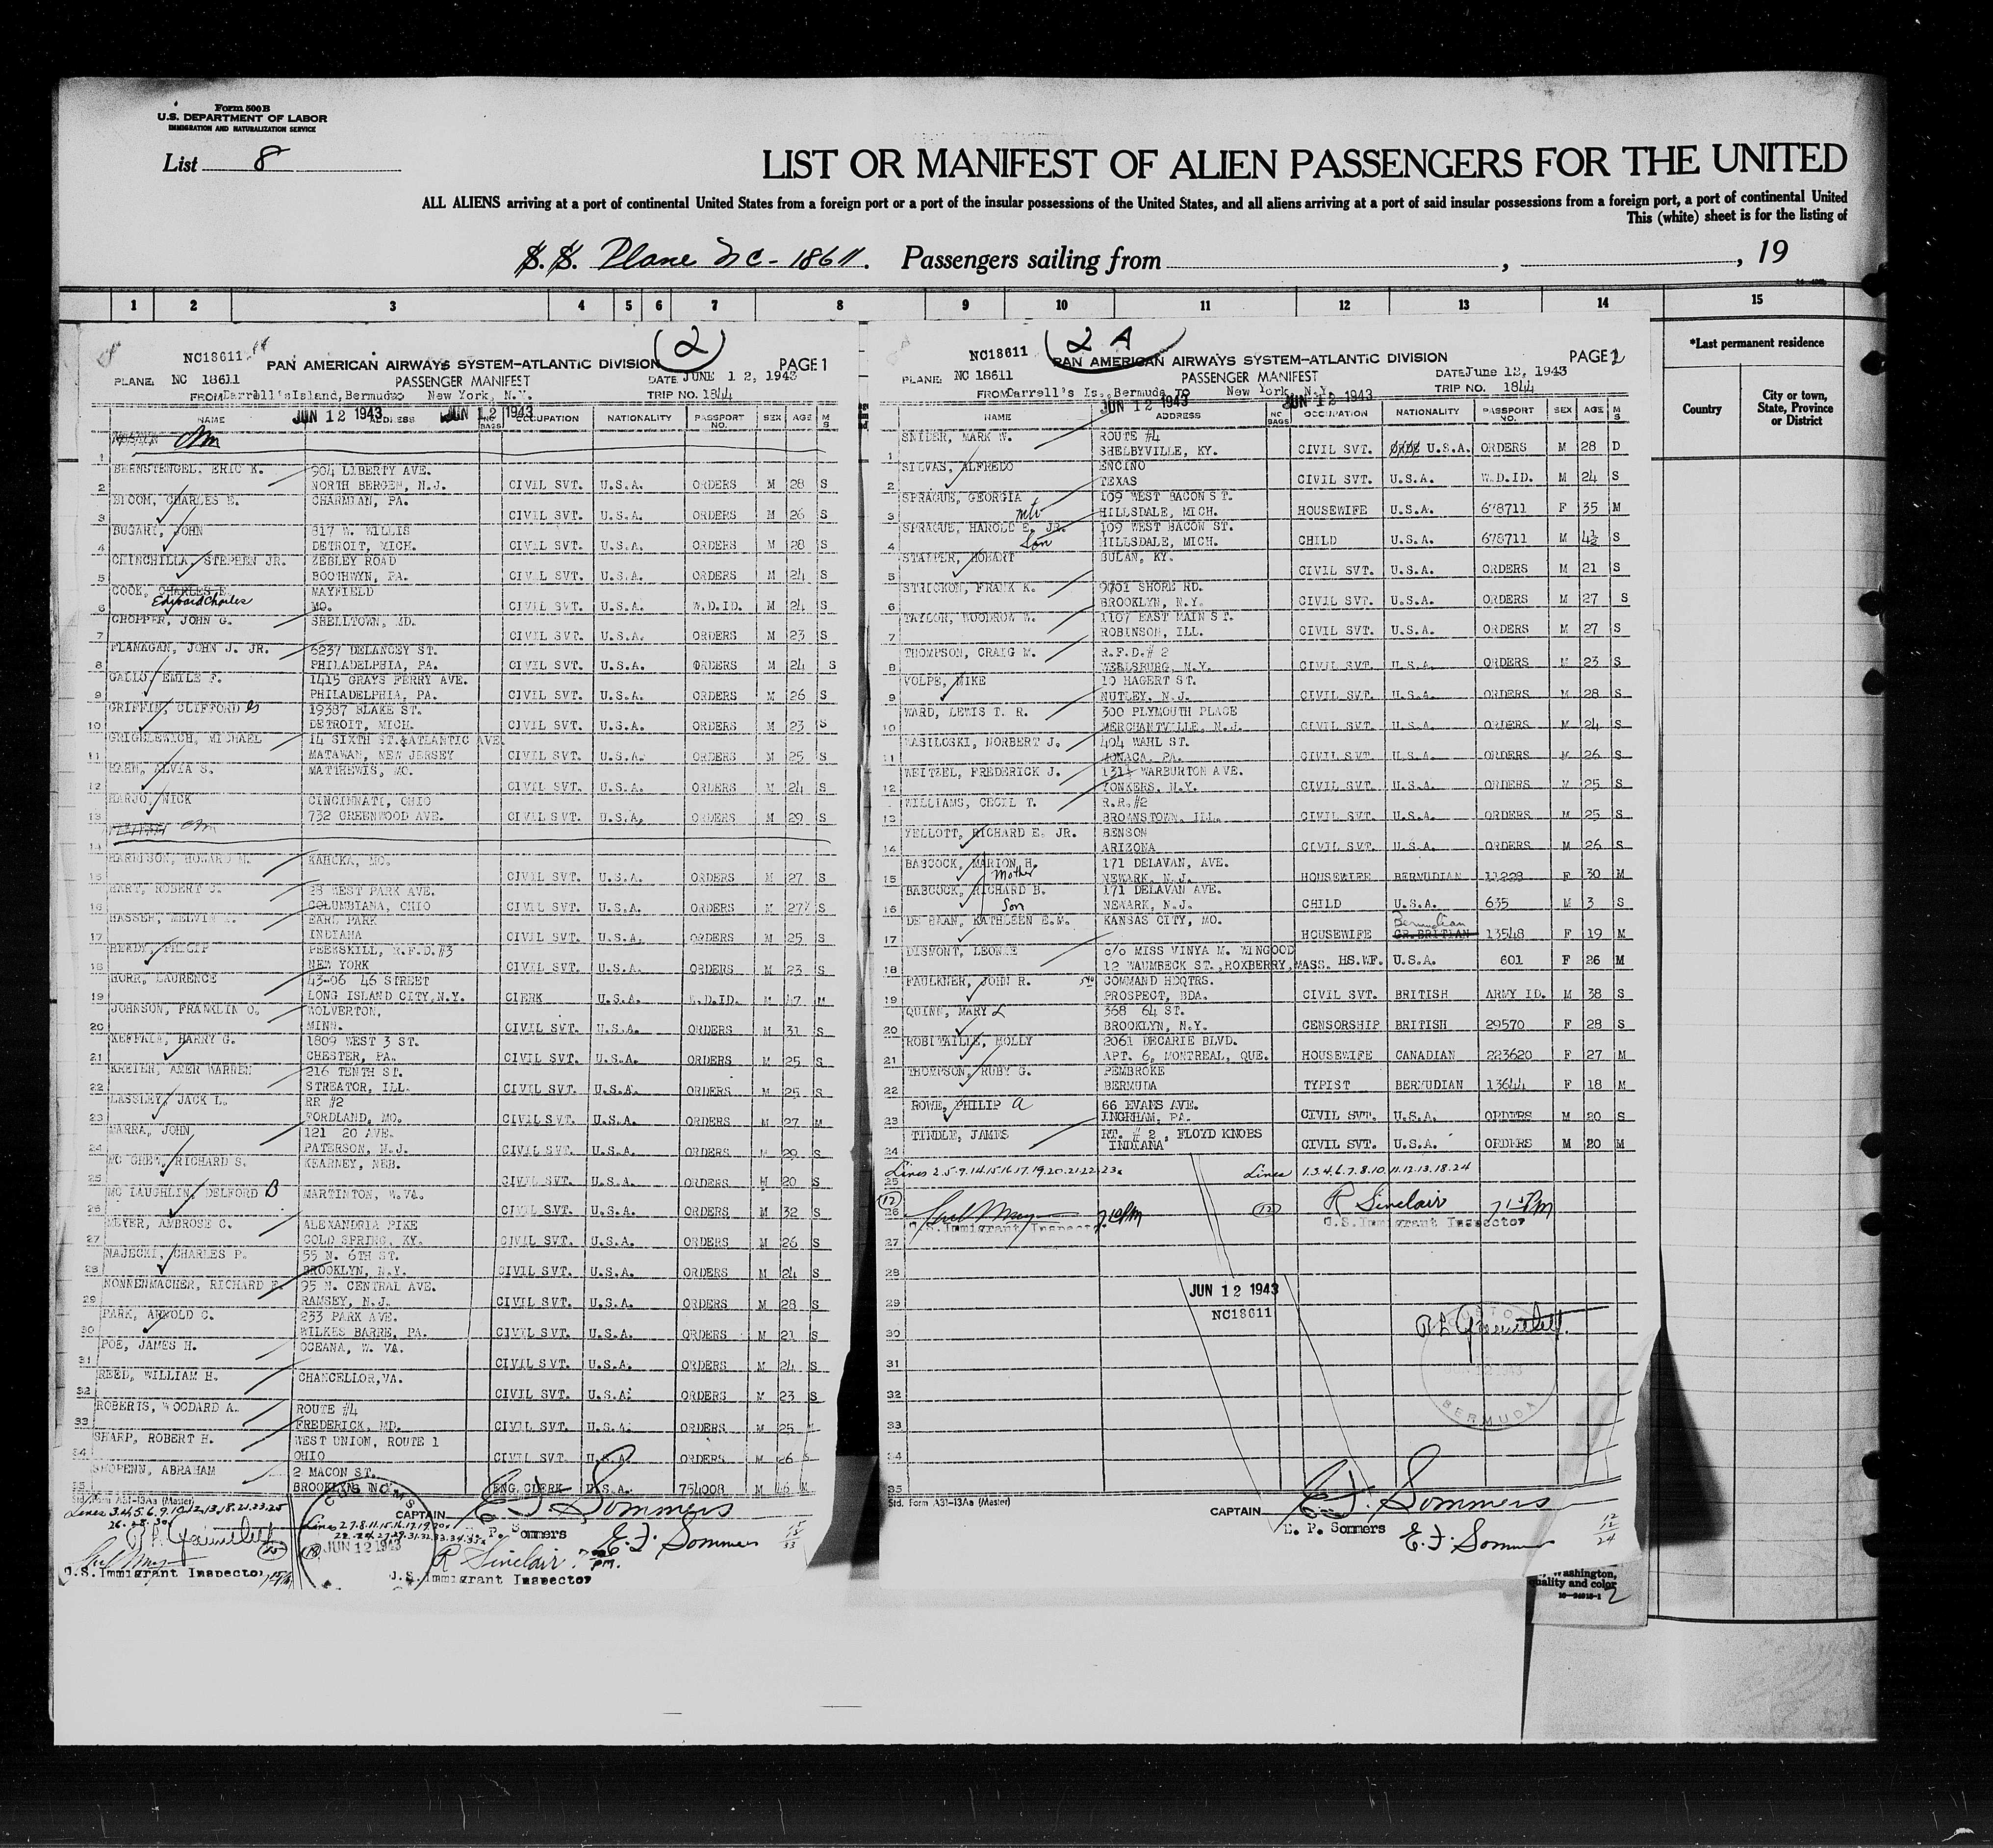 Form 500B
U.S. DEPARTMENT OF LABOR
IMMIGRATION AND NATURALIZATION SERVICE
List 8
LIST OR MANIFEST OF ALIEN PASSENGERS FOR THE UNITED
ALL ALIENS arriving at a port of continental United States from a foreign port or a port of the insular possessions of the United States, and all aliens arriving at a port of said insular possessions from a foreign port, a port of continental United
This (white) sheet is for the listing of
S.S. Plane NC-18611. Passengers sailing from , , 19
1 2 3 4 5 6 7 8 9 10 11 12 13 14 15
*Last permanent residence
Country
City or town, State, Province or District
(2)
NC18611
PAN AMERICAN AIRWAYS SYSTEM-ATLANTIC DIVISION PAGE 1
PLANE NC 18611 PASSENGER MANIFEST DATE JUNE 12, 1943
FROM Darrell's Island, Bermuda TO New York, N.Y. TRIP NO. 1844
JUN 12 1943 JUN 12 1943
NAME ADDRESS NO BAGS OCCUPATION NATIONALITY PASSPORT NO. SEX AGE M S
1
2 BERNSTENGEL, ERIC K. 904 LIBERTY AVE. NORTH BERGEN, N.J. CIVIL SVT. U.S.A. ORDERS M 28 S
3 BLOOM, CHARLES E. CHARMIAN, PA. CIVIL SVT. U.S.A. ORDERS M 26 S
4 BUGARY, JOHN 817 W. WILLIS DETROIT, MICH. CIVIL SVT. U.S.A. ORDERS M 28 S
5 CHINCHILLA, STEPHEN JR. ZEBLEY ROAD BOOTHWYN, PA. CIVIL SVT. U.S.A. ORDERS M 24 S
6 COOK, CHARLES E. Edward Charles MAYFIELD MO. CIVIL SVT. U.S.A. W.D.ID. M 24 S
7 CROPPER, JOHN G. SHELLTOWN, MD. CIVIL SVT. U.S.A. ORDERS M 23 S
8 FLANAGAN, JOHN J. JR. 6237 DELANCEY ST. PHILADELPHIA, PA. CIVIL SVT. U.S.A. ORDERS M 24 S
9 GALLO, EMILE F. 1415 GRAYS FERRY AVE. PHILADELPHIA, PA. CIVIL SVT. U.S.A. ORDERS M 26 S
10 GRIFFIN, CLIFFORD 19387 BLAKE ST. DETROIT, MICH. CIVIL SVT. U.S.A. ORDERS M 23 S
11 GRIGELEWICH, MICHAEL 14 SIXTH ST.&ATLANTIC AVE. MATAWAN, NEW JERSEY CIVIL SVT. U.S.A. ORDERS M 25 S
12 HAHN, ALVIA S. MATTHEWIS, MO. CIVIL SVT. U.S.A. ORDERS M 24 S
13 HARJO, NICK CINCINNATI, OHIO 732 GREENWOOD AVE. CIVIL SVT. U.S.A. ORDERS M 29 S
14
15 HARDISON, HOWARD M. KAHOKA, MO. CIVIL SVT. U.S.A. ORDERS M 27 S
16 HART, ROBERT J. 28 WEST PARK AVE. COLUMBIANA, OHIO CIVIL SVT. U.S.A. ORDERS M 27 S
17 HASSER, MELVIN EARL PARK INDIANA CIVIL SVT. U.S.A. ORDERS M 25 S
18 HEADY, PHILIP PEEKSKILL, R.F.D.#3 NEW YORK CIVIL SVT. U.S.A. ORDERS M 23 S
19 HORR, LAURENCE 43-06 46 STREET LONG ISLAND CITY,N.Y. CLERK U.S.A. W.D.ID. M 47 M
20 JOHNSON, FRANKLIN O. WOLVERTON, MINN. CIVIL SVT. U.S.A. ORDERS M 31 S
21 KEFFRIA, HARRY G. 1809 WEST 3 ST. CHESTER, PA. CIVIL SVT. U.S.A. ORDERS M 25 S
22 KREIER, AMER WARREN 216 TENTH ST. STREATOR, ILL. CIVIL SVT. U.S.A. ORDERS M 25 S
23 LASSLEY, JACK L. RR #2 FORDLAND, MO. CIVIL SVT. U.S.A. ORDERS M 27 M
24 MARRA, JOHN 121 20 AVE. PATERSON, N.J. CIVIL SVT. U.S.A. ORDERS M 29 S
25 MC GHEE, RICHARD S. KEARNEY, NEB. CIVIL SVT. U.S.A. ORDERS M 20 S
26 MC LAUGHLIN, DELFORD B MARTINTON, W.VA. CIVIL SVT. U.S.A. ORDERS M 32 S
27 MEYER, AMBROSE C. ALEXANDRIA PIKE COLD SPRING, KY. CIVIL SVT. U.S.A. ORDERS M 26 S
28 NAJECKI, CHARLES P. 55 N. 6TH ST. BROOKLYN, N.Y. CIVIL SVT. U.S.A. ORDERS M 24 S
29 NONNENMACHER, RICHARD F. 95 N. CENTRAL AVE. RAMSEY, N.J. CIVIL SVT. U.S.A. ORDERS M 28 S
30 PARK, ARNOLD C. 233 PARK AVE. WILKES BARRE, PA. CIVIL SVT. U.S.A. ORDERS M 21 S
31 POE, JAMES H. OCEANA, W. VA. CIVIL SVT. U.S.A. ORDERS M 24 S
32 REED, WILLIAM H. CHANCELLOR,VA. CIVIL SVT. U.S.A. ORDERS M 23 S
33 ROBERTS, WOODARD A. ROUTE #4 FREDERICK, MD. CIVIL SVT. U.S.A. ORDERS M 25 M
34 SHARP, ROBERT H. WEST UNION, ROUTE 1 OHIO CIVIL SVT. U.S.A. ORDERS M 26 S
35 SHOPENN, ABRAHAM 2 MACON ST. BROOKLYN, N.Y. ENG. CLERK U.S.A. 754008 M 46 M
Std. Form A31-13Aa (Master)
Lines 3.4.5.6.9.10.12.13.18.21.23.25
26.28.30
Lines 2.7.8.11.15.16.17.19.20
22.24.27.29.31.32.33.34.35
CUSTOMS
JUN 12 1943
CAPTAIN E. F. Sommers
E. P. Sommers
E. F. Sommers
R Sinclair
U.S. Immigrant Inspector
U.S. Immigrant Inspector
15
18
33
2 A
NC18611
PAN AMERICAN AIRWAYS SYSTEM-ATLANTIC DIVISION PAGE 2
PLANE NC 18611 PASSENGER MANIFEST DATE June 12, 1943
FROM Darrell's Is., Bermuda TO New York, N.Y. TRIP NO. 1844
JUN 12 1943 JUN 12 1943
NAME ADDRESS NO BAGS OCCUPATION NATIONALITY PASSPORT NO. SEX AGE M S
1 SNIDER, MARK W. ROUTE #4 SHELBYVILLE, KY. CIVIL SVT. U.S.A. ORDERS M 28 D
2 SILVAS, ALFREDO ENCINO TEXAS CIVIL SVT. U.S.A. W.D.ID. M 24 S
3 SPRAGUE, GEORGIA 109 WEST BACON ST. HILLSDALE, MICH. HOUSEWIFE U.S.A. 678711 F 35 M
4 SPRAGUE, HAROLD E. JR. Son 109 WEST BACON ST. HILLSDALE, MICH. CHILD U.S.A. 678711 M 4½ S
5 STAMPER, HOBART BULAN, KY. CIVIL SVT. U.S.A. ORDERS M 21 S
6 STRICKON, FRANK K. 9701 SHORE RD. BROOKLYN, N.Y. CIVIL SVT. U.S.A. ORDERS M 27 S
7 TAYLOR, WOODROW W. 1107 EAST MAIN ST. ROBINSON, ILL. CIVIL SVT. U.S.A. ORDERS M 27 S
8 THOMPSON, CRAIG M. R.F.D.# 2 WELLSBURG, N.Y. CIVIL SVT. U.S.A. ORDERS M 23 S
9 VOLPE, MIKE 10 HAGERT ST. NUTLEY, N.J. CIVIL SVT. U.S.A. ORDERS M 28 S
10 WARD, LEWIS T. R. 300 PLYMOUTH PLACE MERCHANTVILLE, N.J. CIVIL SVT. U.S.A. ORDERS M 24 S
11 WASILOSKI, NORBERT J. 404 WAHL ST. MONACA, PA. CIVIL SVT. U.S.A. ORDERS M 26 S
12 WEITZEL, FREDERICK J. 131½ WARBURTON AVE. YONKERS, N.Y. CIVIL SVT. U.S.A. ORDERS M 25 S
13 WILLIAMS, CECIL T. R.R.#2 BROWNSTOWN, ILL. CIVIL SVT. U.S.A. ORDERS M 25 S
14 YELLOTT, RICHARD E. JR. BENSON ARIZONA CIVIL SVT. U.S.A. ORDERS M 26 S
15 BABCOCK, MARION H. Mother 171 DELAVAN, AVE. NEWARK, N.J. HOUSEWIFE BERMUDIAN 11228 F 30 M
16 BABCOCK, RICHARD B. Son 171 DELAVAN AVE. NEWARK, N.J. CHILD U.S.A. 635 M 3 S
17 DE BEAN, KATHLEEN E.M. KANSAS CITY, MO. HOUSEWIFE GR.BRITIAN Bermudian 13548 F 19 M
18 DISMONT, LEONIE c/o MISS VINYA M. WINGOOD 12 WAUMBECK ST.,ROXBERRY,MASS. HS.WF. U.S.A. 601 F 26 M
19 FAULKNER, JOHN R. COMMAND HDQTRS. PROSPECT, BDA. CIVIL SVT. BRITISH ARMY ID. M 38 S
20 QUINN, MARY L 368 64 ST. BROOKLYN, N.Y. CENSORSHIP BRITISH 29570 F 28 S
21 ROBITAILLE, HOLLY 2061 DECARIE BLVD. APT. 6, MONTREAL, QUE. HOUSEWIFE CANADIAN 223620 F 27 M
22 THOMPSON, RUBY G. PEMBROKE BERMUDA TYPIST BERMUDIAN 13644 F 18 M
23 ROWE, PHILIP A 66 EVANS AVE. INGRHAM, PA. CIVIL SVT. U.S.A. ORDERS M 20 S
24 TINDLE, JAMES RT. # 2, FLOYD KNOBS INDIANA CIVIL SVT. U.S.A. ORDERS M 20 M
25 Lines 2.5.9.14.15.16.17.19.20.21.22.23 Lines 1.3.4.6.7.8.10.11.12.13.18.24
26 (12) (12) R Sinclair
U.S.Immigrant Inspector U.S.Immigrant Inspector
27
28
29
30
31
32
33
34
35
JUN 12 1943
NC18611
BERMUDA
Std. Form A31-13Aa (Master)
CAPTAIN E. F. Sommers
E. P. Sommers
E. F. Sommers
12
12
24
Washington,
quality and color
2